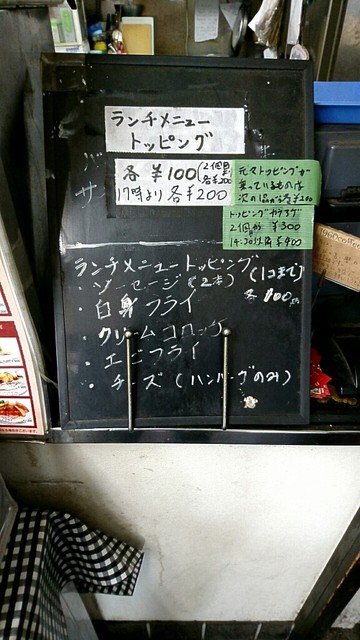 ランチメニュー
トッピング
各 ¥100(2個目各¥200)
17時より 各¥200
元々トッピングが
乗っているものは
次の1品から各¥200
トッピングカキフライ
2個が ¥300
14:30以降¥400
ランチメニュートッピング
(1コまで)
・ソーセージ(2本)
各100
・白身フライ
・クリームコロッケ
・エビフライ
・チーズ(ハンバーグのみ)